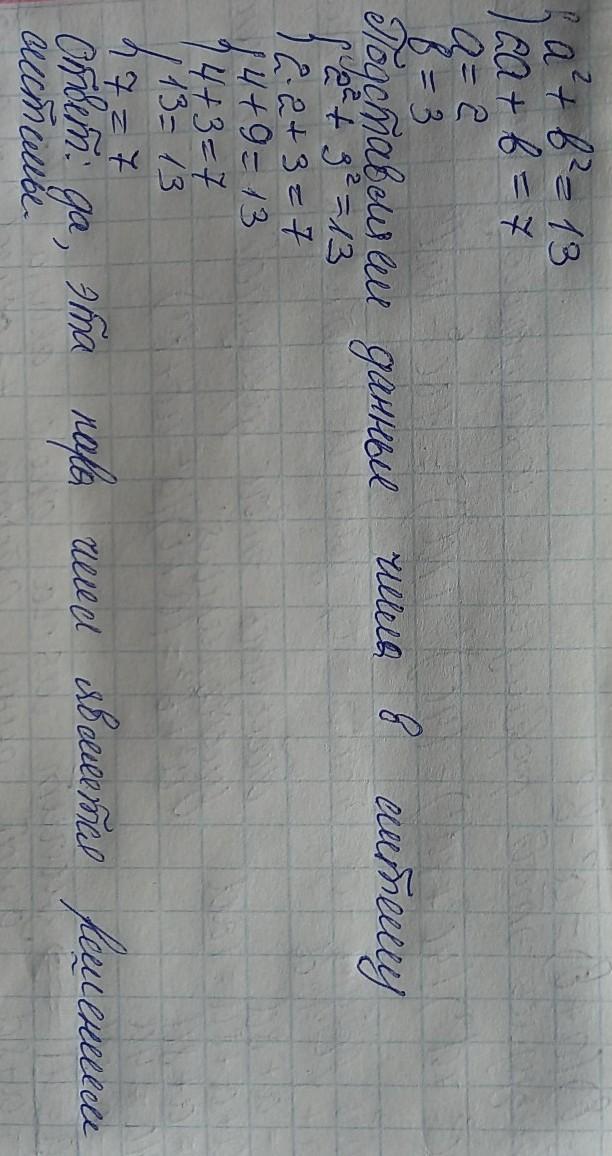 { a² + b² = 13
2a + b = 7
a = 2
b = 3
Подставляем данные числа в систему
{ 2² + 3² = 13
2·2 + 3 = 7
{ 4 + 9 = 13
4 + 3 = 7
{ 13 = 13
7 = 7
Ответ: да, эта пара чисел является решением
системы.